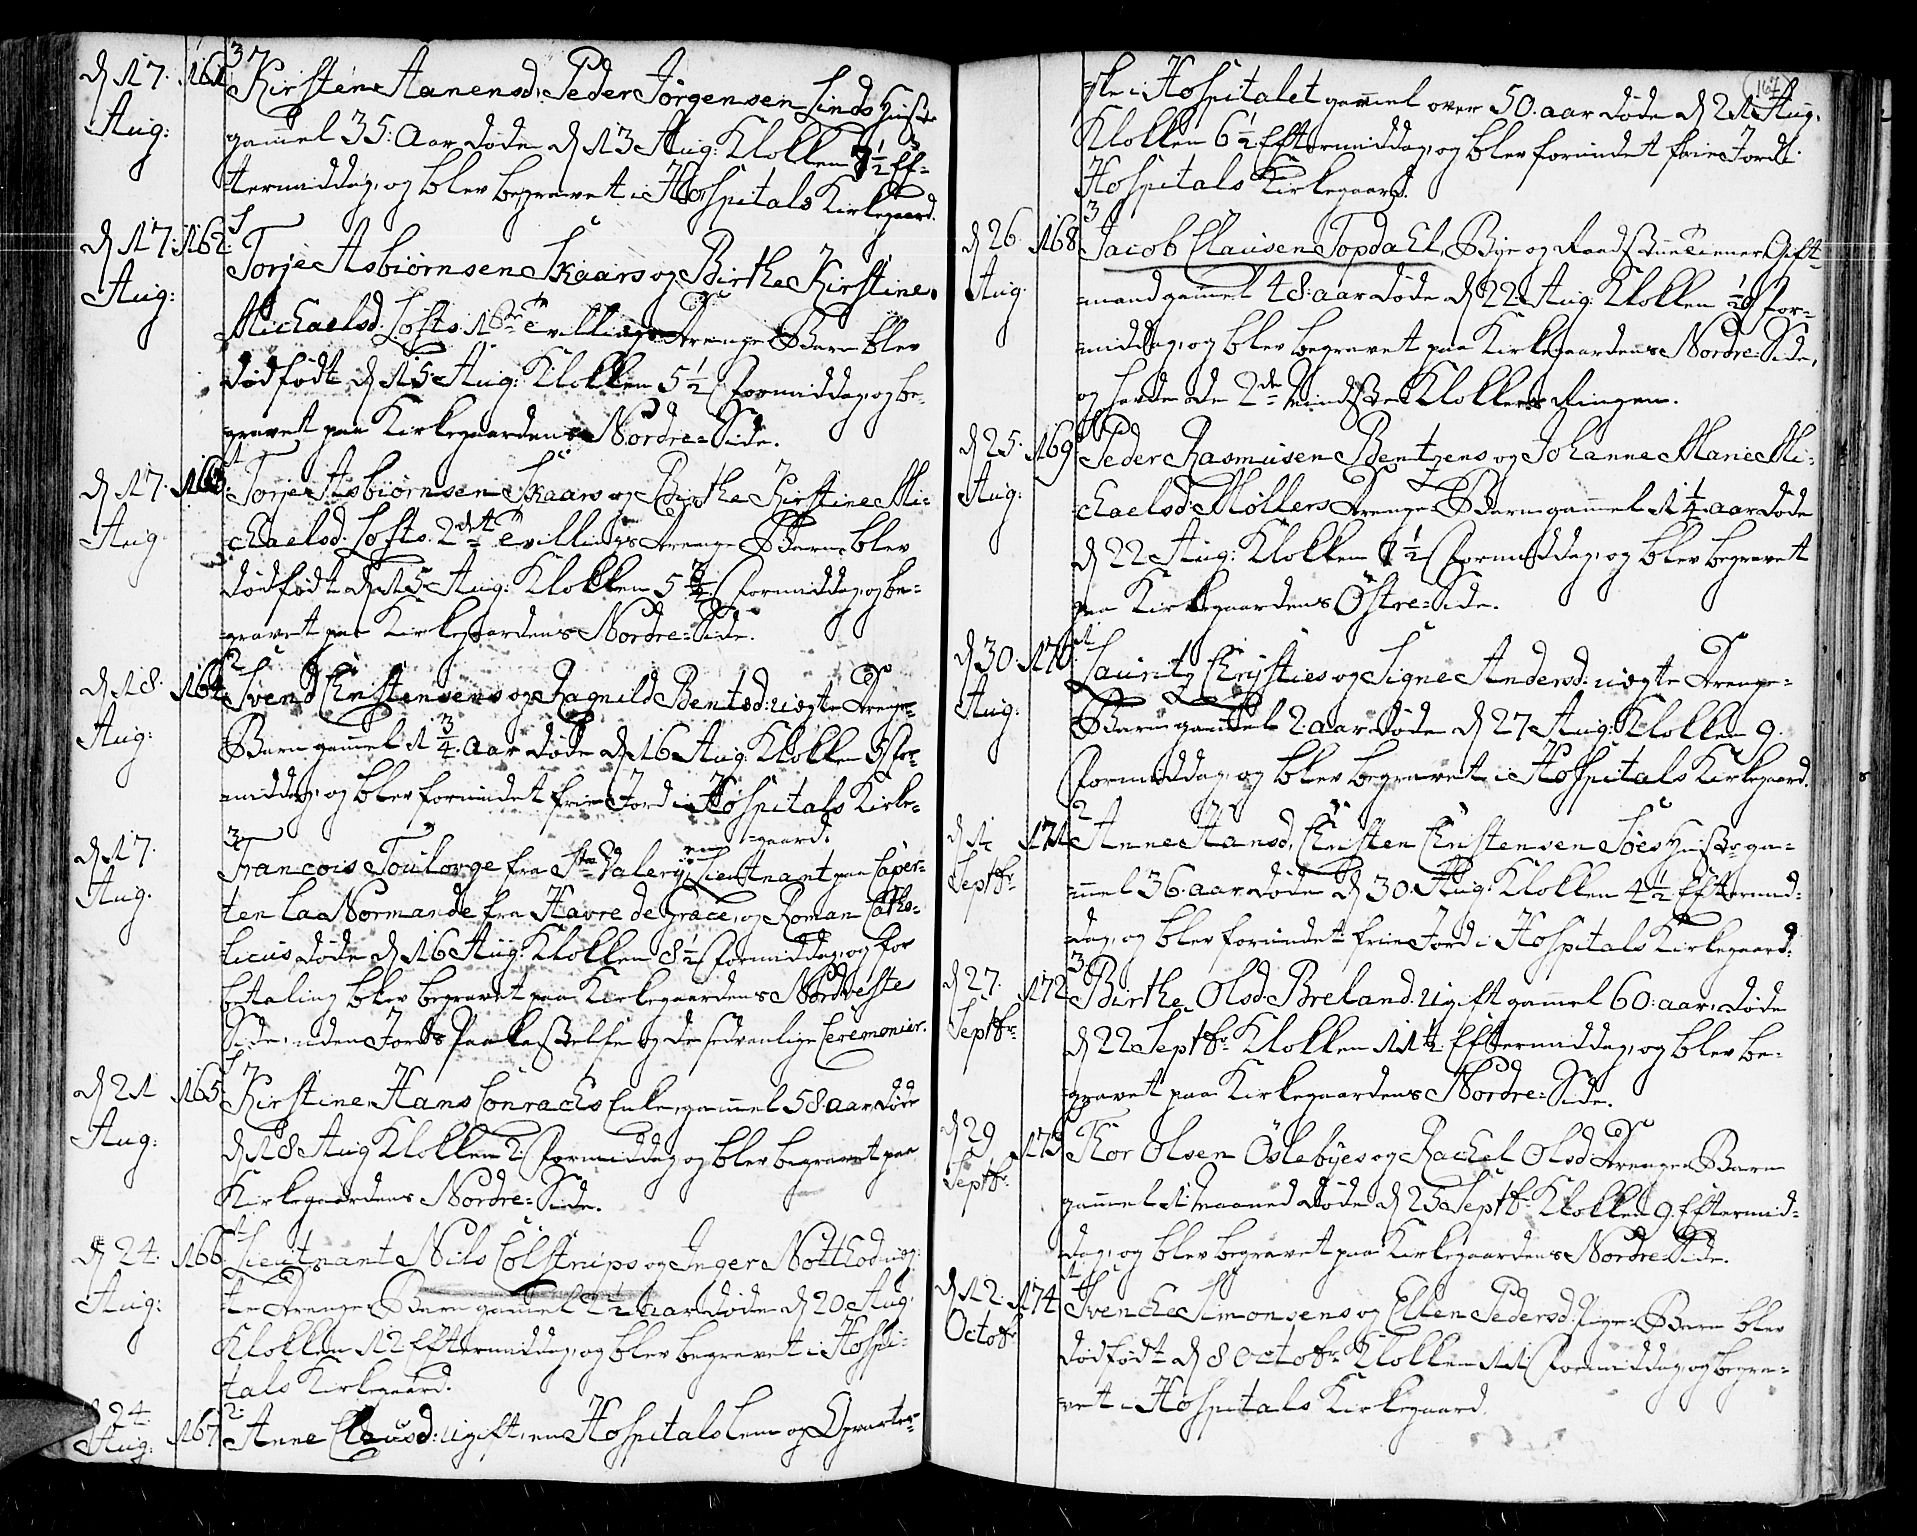 d 17. 161. 3
Aug:
Kirstine Hanensd. Peder Jörgensen Linds Huste
gammel 35: Aar døde d 13 Aug: Klokken 7½ Ef-
termiddag, og blev begravet i Hospitals Kirkegaard.
d 17. 162. 1
Aug:
Torje Asbiörnsen Skaars og Birthe Kirstine
Michaelsd. Lofts. 1ste Tvillings Drenge Barn blev
dødfødt d 15 Aug: Klokken 5½ Formiddag, og be-
gravet paa Kirkegaardens Nordre=Side.
d 17. 163. 1
Aug
Torje Asbiörnsen Skaars og Birthe Kirstine Mi-
chaelsd. Lofts. 2det Tvillings Drenge Barn blev
dødfødt d 15 Aug: Klokken 5 Formiddag, og be-
gravet paa Kirkegaardens Nordre=Side.
d 18. 164. 2
Aug:
Svend Christensens og Ragnild Bentsd: uegte Drenge-
Barn gammel 1¾ aar døde d 16 Aug: Klokken 5 For-
middag, og blev forundet frie Jord i Hospitals Kirke-
gaard.
d 17. 3
Aug.
Francois Toulorge fra Ste Valery, Lieutnant paa Caper-
ten La Normande fra Havre de Grace, og Roman Catho-
licus, døde d 16 Aug: Klokken 8½ Formiddag, og for
betaling blev begravet paa Kirkegaardens Nordveste
Side, uden Jords Paakastelse og de sedvanlige Ceremonier.
d 21 165
Aug:
Kirstine Hans Conrachs Enke, gammel 58 aar, døde
d 18 Aug Klokken 2: Formiddag og blev begravet paa
Kirkegaardens Nordre=Side.
d 24. 166. 1
Aug:
Lieutnant Nils Colstrups og Inger Notthod ueg-
te Drenge Barn gammel 2½ Aar døde d 20 Aug:
Klokken 12 Eftermiddag, og blev begravet i Hospi-
tals Kirkegaard.
24. 167 2
Aug:
Anne Clausd: ugift, en Hospitals Lem og Opvarter-
ske i Hospitalet gammel over 50. aar døde d 21 Aug.
Klokken 6½ Eftermiddag, og blev forundet frie Jord i
Hospitals Kirkegaard.
d 26. 168 3
Aug.
Jacob Clausen Topdahl, Bye og Raadstue Tiener Gift-
mand gammel 48: aar døde d 22 Aug: Klokken For-
middag, og blev begravet paa Kirkegaardens Nordre=Side,
og havde de 2de mindste Klokkers Ringen.
d 25. 169
Aug:
Peder Rasmusen Bentzens og Johanne Marie Mi-
chaelsd. Möllers Drenge Barn gammel 1¼ aar døde
d 22 Aug: Klokken 7½ Formiddag, og blev begravet
paa Kirkegaardens Östre=Side.
d 30. 170
Aug:
Lauritz Christies og Signe Andersd: uegte Drenge-
Barn gammel 2. aar døde d 27 Aug: Klokken 9.
Formiddag, og blev begravet i Hospitals Kirkegaard.
d 1. 171 2
Septbr
Anne Hansd, Christen Christensen Töes Hustr. ga-
mmel 36. aar døde d 30. Aug: Klokken 4½ Eftermid-
dag, og blev forundet frie Jord i Hospitals Kirkegaard.
d 27. 172. 3
Septbr
Birthe Olsd Breland. ugift gammel 60: aar, døde
d 22 Septbr Klokken 11½ Eftermiddag, og blev be-
gravet paa Kirkegaardens Nordre=Side.
d 29 173
Septbr
Thor Olsen Öslebyes og Rachel Olsd: Drenge Barn
gammel 1 Maaned døde d 25 Septbr Klokken 9. Eftermid-
dag, og blev begravet paa Kirkegaardens Nordre Side.
d 12. 174. 1
Octobr
Svenche Simonsens og Ellen Pedersd: Pige Barn blev
dødfødt d 8 octobr Klokken 11 Formiddag, og begra-
vet i Hospitals Kirkegaard.